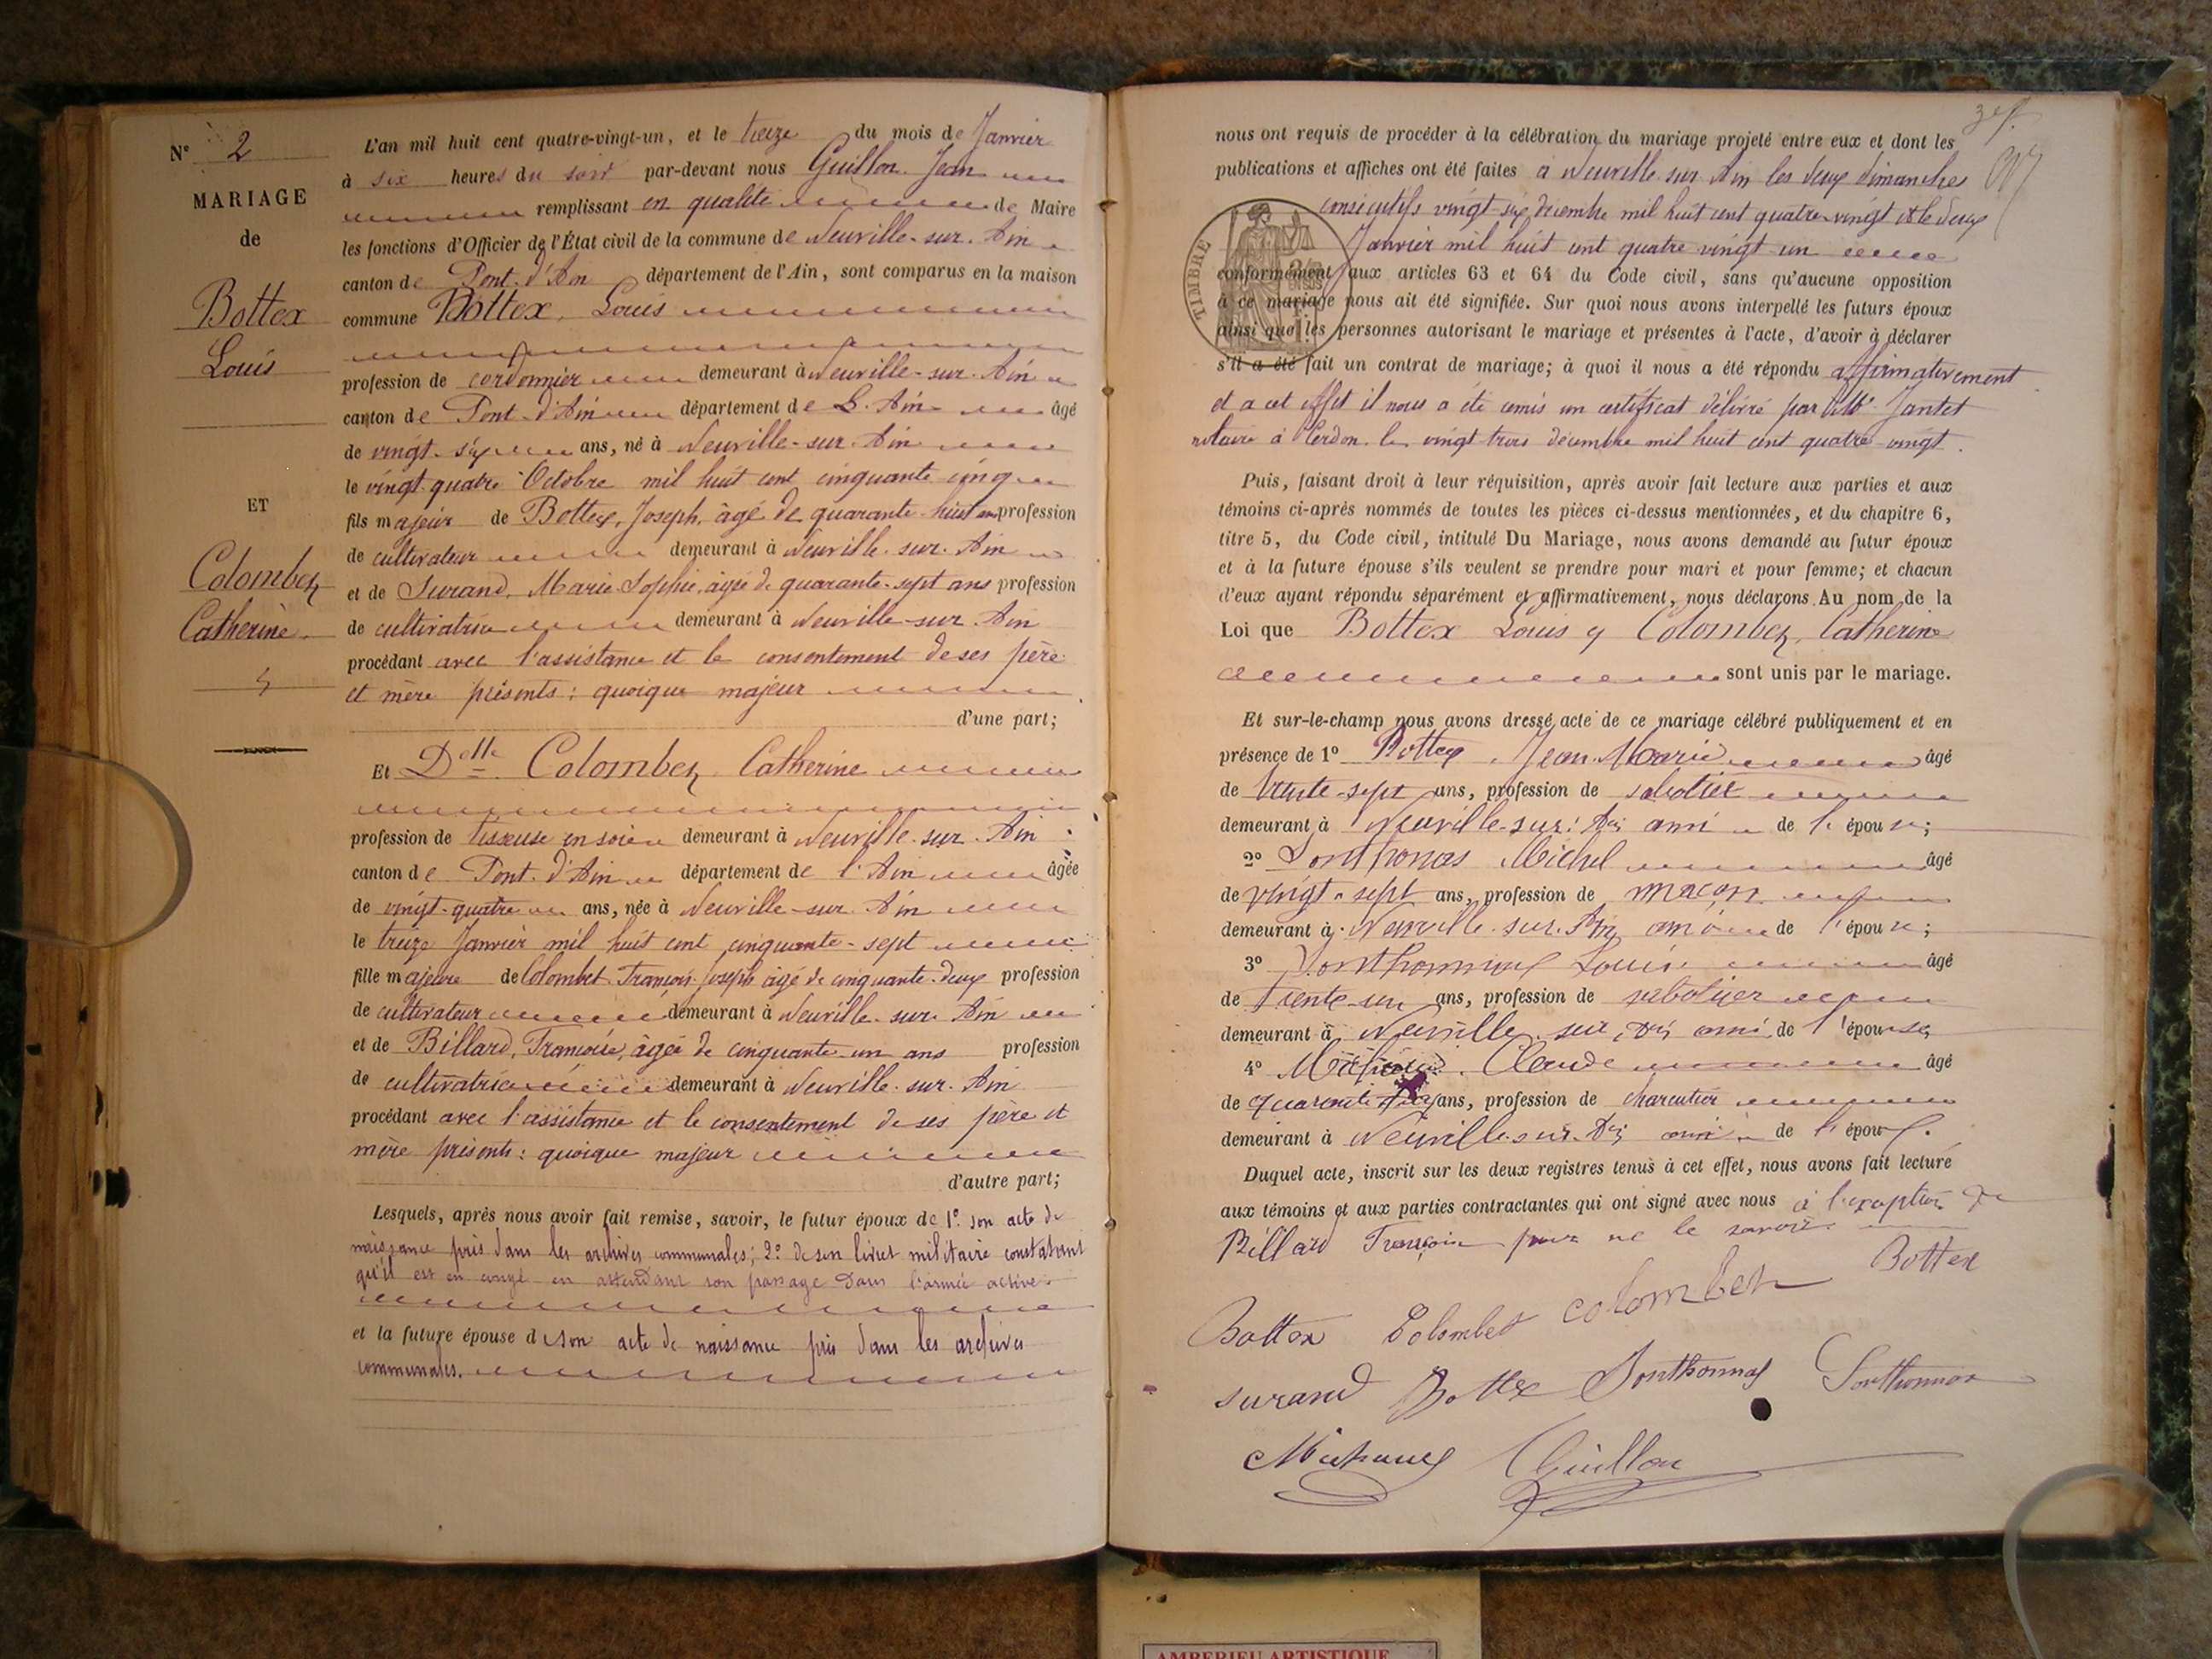 N° 2
MARIAGE
de
Bottex
Louis
ET
Colombet
Catherine
L'an mil huit cent quatre-vingt-un, et le treize du mois de Janvier
à six heures du soir par-devant nous Guillon Jean
remplissant en qualité de Maire
les fonctions d'Officier de l'État civil de la commune de Neuville-sur-Ain
canton de Pont-d'Ain département de l'Ain, sont comparus en la maison
commune Bottex, Louis
profession de cordonnier demeurant à Neuville-sur-Ain
canton de Pont-d'Ain département de L'Ain âgé
de vingt-six ans, né à Neuville-sur-Ain
le vingt quatre Octobre mil huit cent cinquante cinq
fils majeur de Bottex, Joseph, âgé de quarante-huit ans profession
de cultivateur demeurant à Neuville-sur-Ain
et de Surand, Marie Sophie, âgée de quarante-sept ans profession
de cultivatrice demeurant à Neuville-sur-Ain
procédant avec l'assistance et le consentement de ses père
et mère présents: quoique majeur
d'une part;
Et Delle Colombet Catherine
profession de tisseuse en soie demeurant à Neuville-sur-Ain
canton de Pont-d'Ain département de l'Ain âgée
de vingt-quatre ans, née à Neuville-sur-Ain
le treize Janvier mil huit cent cinquante-sept
fille majeure de Colombet François Joseph âgé de cinquante-deux profession
de cultivateur demeurant à Neuville-sur-Ain
et de Billard, Françoise, âgée de cinquante-un ans profession
de cultivatrice demeurant à Neuville-sur-Ain
procédant avec l'assistance et le consentement de ses père et
mère présents: quoique majeur
d'autre part;
Lesquels, après nous avoir fait remise, savoir, le futur époux de 1° son acte de
naissance pris dans les archives communales; 2° de son livret militaire constatant
qu'il est en congé en attendant son passage dans l'armée active
et la future épouse de son acte de naissance pris dans les archives
communales.
nous ont requis de procéder à la célébration du mariage projeté entre eux et dont les
publications et affiches ont été faites à Neuville-sur-Ain les deux dimanches
consécutifs vingt-six décembre mil huit cent quatre-vingt et le deux
Janvier mil huit cent quatre vingt un
TIMBRE
conformément aux articles 63 et 64 du Code civil, sans qu'aucune opposition
à ce mariage nous ait été signifiée. Sur quoi nous avons interpellé les futurs époux
ainsi que les personnes autorisant le mariage et présentes à l'acte, d'avoir à déclarer
s'il a été fait un contrat de mariage; à quoi il nous a été répondu affirmativement
et a cet effet il nous a été remis un certificat délivré par Me Jantet
notaire à Cerdon le vingt trois décembre mil huit cent quatre-vingt.
Puis, faisant droit à leur réquisition, après avoir fait lecture aux parties et aux
témoins ci-après nommés de toutes les pièces ci-dessus mentionnées, et du chapitre 6,
titre 5, du Code civil, intitulé Du Mariage, nous avons demandé au futur époux
et à la future épouse s'ils veulent se prendre pour mari et pour femme; et chacun
d'eux ayant répondu séparément et affirmativement, nous déclarons Au nom de la
Loi que Bottex Louis et Colombet, Catherine
sont unis par le mariage.
Et sur-le-champ nous avons dressé acte de ce mariage célébré publiquement et en
présence de 1° Bottex, Jean-Marie âgé
de trente-sept ans, profession de sabotier
demeurant à Neuville-sur-Ain ami de l'épouse;
2° Sonthonnas Michel âgé
de vingt-sept ans, profession de maçon
demeurant à Neuville-sur-Ain ami de l'épouse;
3° Sonthonnas Louis âgé
de trente-un ans, profession de sabotier
demeurant à Neuville-sur-Ain ami de l'épouse
4° Michaud Claude âgé
de quarante ans, profession de charcutier
demeurant à Neuville-sur-Ain ami de l'époux.
Duquel acte, inscrit sur les deux registres tenus à cet effet, nous avons fait lecture
aux témoins et aux parties contractantes qui ont signé avec nous à l'exception de
Billard Françoise pour ne le savoir.
Bottex
Bottex Colombet Colombet
Surand Bottex Sonthonnas Sonthonnas
Michaud Guillon
AMBERIEU ARTISTIQUE